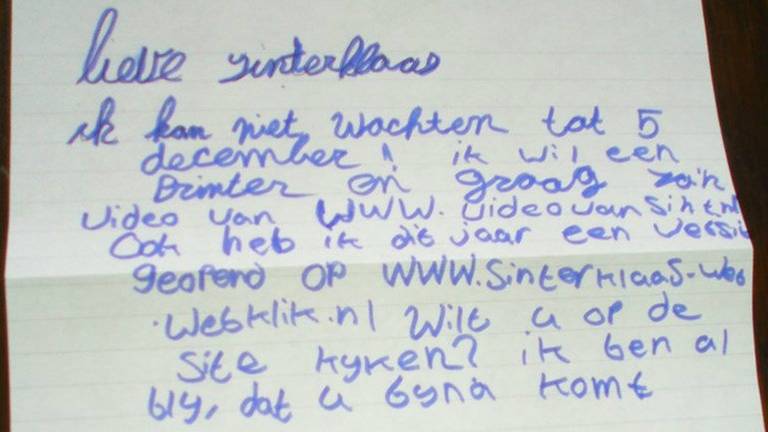 lieve sinterklaas
ik kan niet wachten tot 5
december! ik wil een
Printer en graag zo'n
video van WWW.videovansint.nl
Ook heb ik dit jaar een
geopend OP WWW.Sinterklaas-web
.Webklik.nl Wilt u op de
Site kyken? ik ben al
bly, dat u byna komt